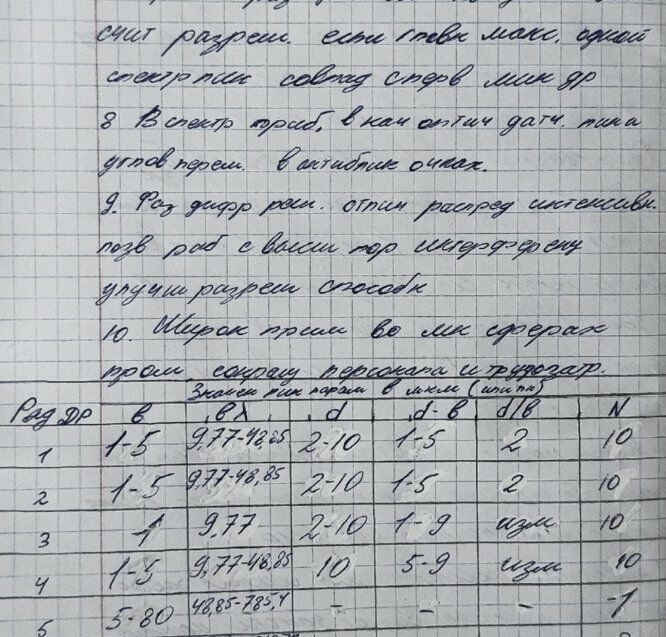 счит разреш. если главн макс. одной
спектр лин совпад с перв мин др
8 В спектр приб, в кач оптич датч. лин и
углов перем. в антиблик очках.
9. Фаз дифр реш. отлич распред интенсивн.
позв раб с высш пор интерференц
улучш разреш способн
10. Широк прим во мн сферах
пром, сокращ персонала и трудозатр.
Значен лин парам в мкм (или λ)
Ряд ДР b bλ d d-b d/b N
1 1-5 9,77-48,85 2-10 1-5 2 10
2 1-5 9,77-48,85 2-10 1-5 2 10
3 1 9,77 2-10 1-9 изм 10
4 1-5 9,77-48,85 10 5-9 изм 10
5 5-80 48,85-785,4 - - - 1